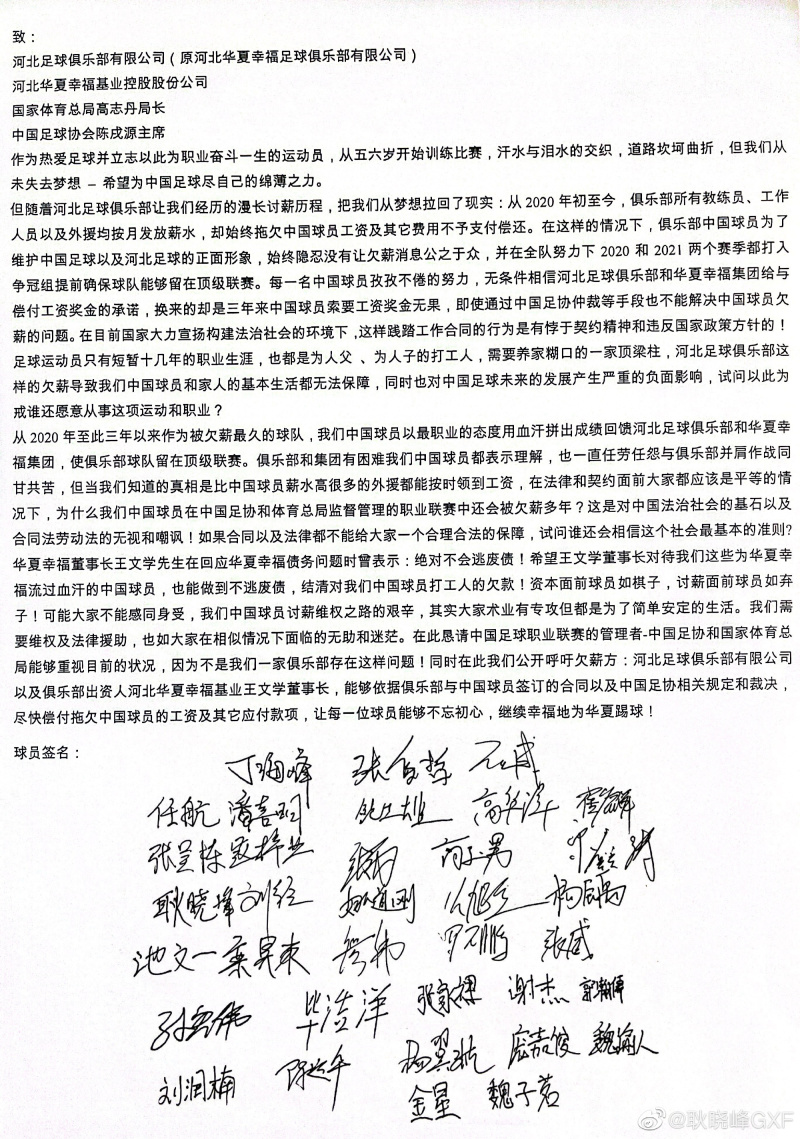 致：
河北足球俱乐部有限公司（原河北华夏幸福足球俱乐部有限公司）
河北华夏幸福基业控股股份公司
国家体育总局高志丹局长
中国足球协会陈戌源主席
作为热爱足球并立志以此为职业奋斗一生的运动员，从五六岁开始训练比赛，汗水与泪水的交织，道路坎坷曲折，但我们从
未失去梦想 – 希望为中国足球尽自己的绵薄之力。
但随着河北足球俱乐部让我们经历的漫长讨薪历程，把我们从梦想拉回了现实：从 2020 年初至今，俱乐部所有教练员、工作
人员以及外援均按月发放薪水，却始终拖欠中国球员工资及其它费用不予支付偿还。在这样的情况下，俱乐部中国球员为了
维护中国足球以及河北足球的正面形象，始终隐忍没有让欠薪消息公之于众，并在全队努力下 2020 和 2021 两个赛季都打入
争冠组提前确保球队能够留在顶级联赛。每一名中国球员孜孜不倦的努力，无条件相信河北足球俱乐部和华夏幸福集团给与
偿付工资奖金的承诺，换来的却是三年来中国球员索要工资奖金无果，即使通过中国足协仲裁等手段也不能解决中国球员欠
薪的问题。在目前国家大力宣扬构建法治社会的环境下，这样践踏工作合同的行为是有悖于契约精神和违反国家政策方针的！
足球运动员只有短暂十几年的职业生涯，也都是为人父 、为人子的打工人，需要养家糊口的一家顶梁柱，河北足球俱乐部这
样的欠薪导致我们中国球员和家人的基本生活都无法保障，同时也对中国足球未来的发展产生严重的负面影响，试问以此为
戒谁还愿意从事这项运动和职业？
从 2020 年至此三年以来作为被欠薪最久的球队，我们中国球员以最职业的态度用血汗拼出成绩回馈河北足球俱乐部和华夏幸
福集团，使俱乐部球队留在顶级联赛。俱乐部和集团有困难我们中国球员都表示理解，也一直任劳任怨与俱乐部并肩作战同
甘共苦，但当我们知道的真相是比中国球员薪水高很多的外援都能按时领到工资，在法律和契约面前大家都应该是平等的情
况下，为什么我们中国球员在中国足协和体育总局监督管理的职业联赛中还会被欠薪多年？这是对中国法治社会的基石以及
合同法劳动法的无视和嘲讽！如果合同以及法律都不能给大家一个合理合法的保障，试问谁还会相信这个社会最基本的准则?
华夏幸福董事长王文学先生在回应华夏幸福债务问题时曾表示：绝对不会逃废债！希望王文学董事长对待我们这些为华夏幸
福流过血汗的中国球员，也能做到不逃废债，结清对我们中国球员打工人的欠款！资本面前球员如棋子，讨薪面前球员如弃
子！可能大家不能感同身受，我们中国球员讨薪维权之路的艰辛，其实大家术业有专攻但都是为了简单安定的生活。我们需
要维权及法律援助，也如大家在相似情况下面临的无助和迷茫。在此恳请中国足球职业联赛的管理者-中国足协和国家体育总
局能够重视目前的状况，因为不是我们一家俱乐部存在这样问题！同时在此我们公开呼吁欠薪方：河北足球俱乐部有限公司
以及俱乐部出资人河北华夏幸福基业王文学董事长，能够依据俱乐部与中国球员签订的合同以及中国足协相关规定和裁决，
尽快偿付拖欠中国球员的工资及其它应付款项，让每一位球员能够不忘初心，继续幸福地为华夏踢球！
球员签名：
丁海峰
任航 潘喜明 高华泽
张呈栋
耿晓峰 刘 姚道刚
池文一 张威
毕滢洋 张家祺 谢杰
刘润楠 庞嘉俊
金星 魏子茗
@耿晓峰GXF